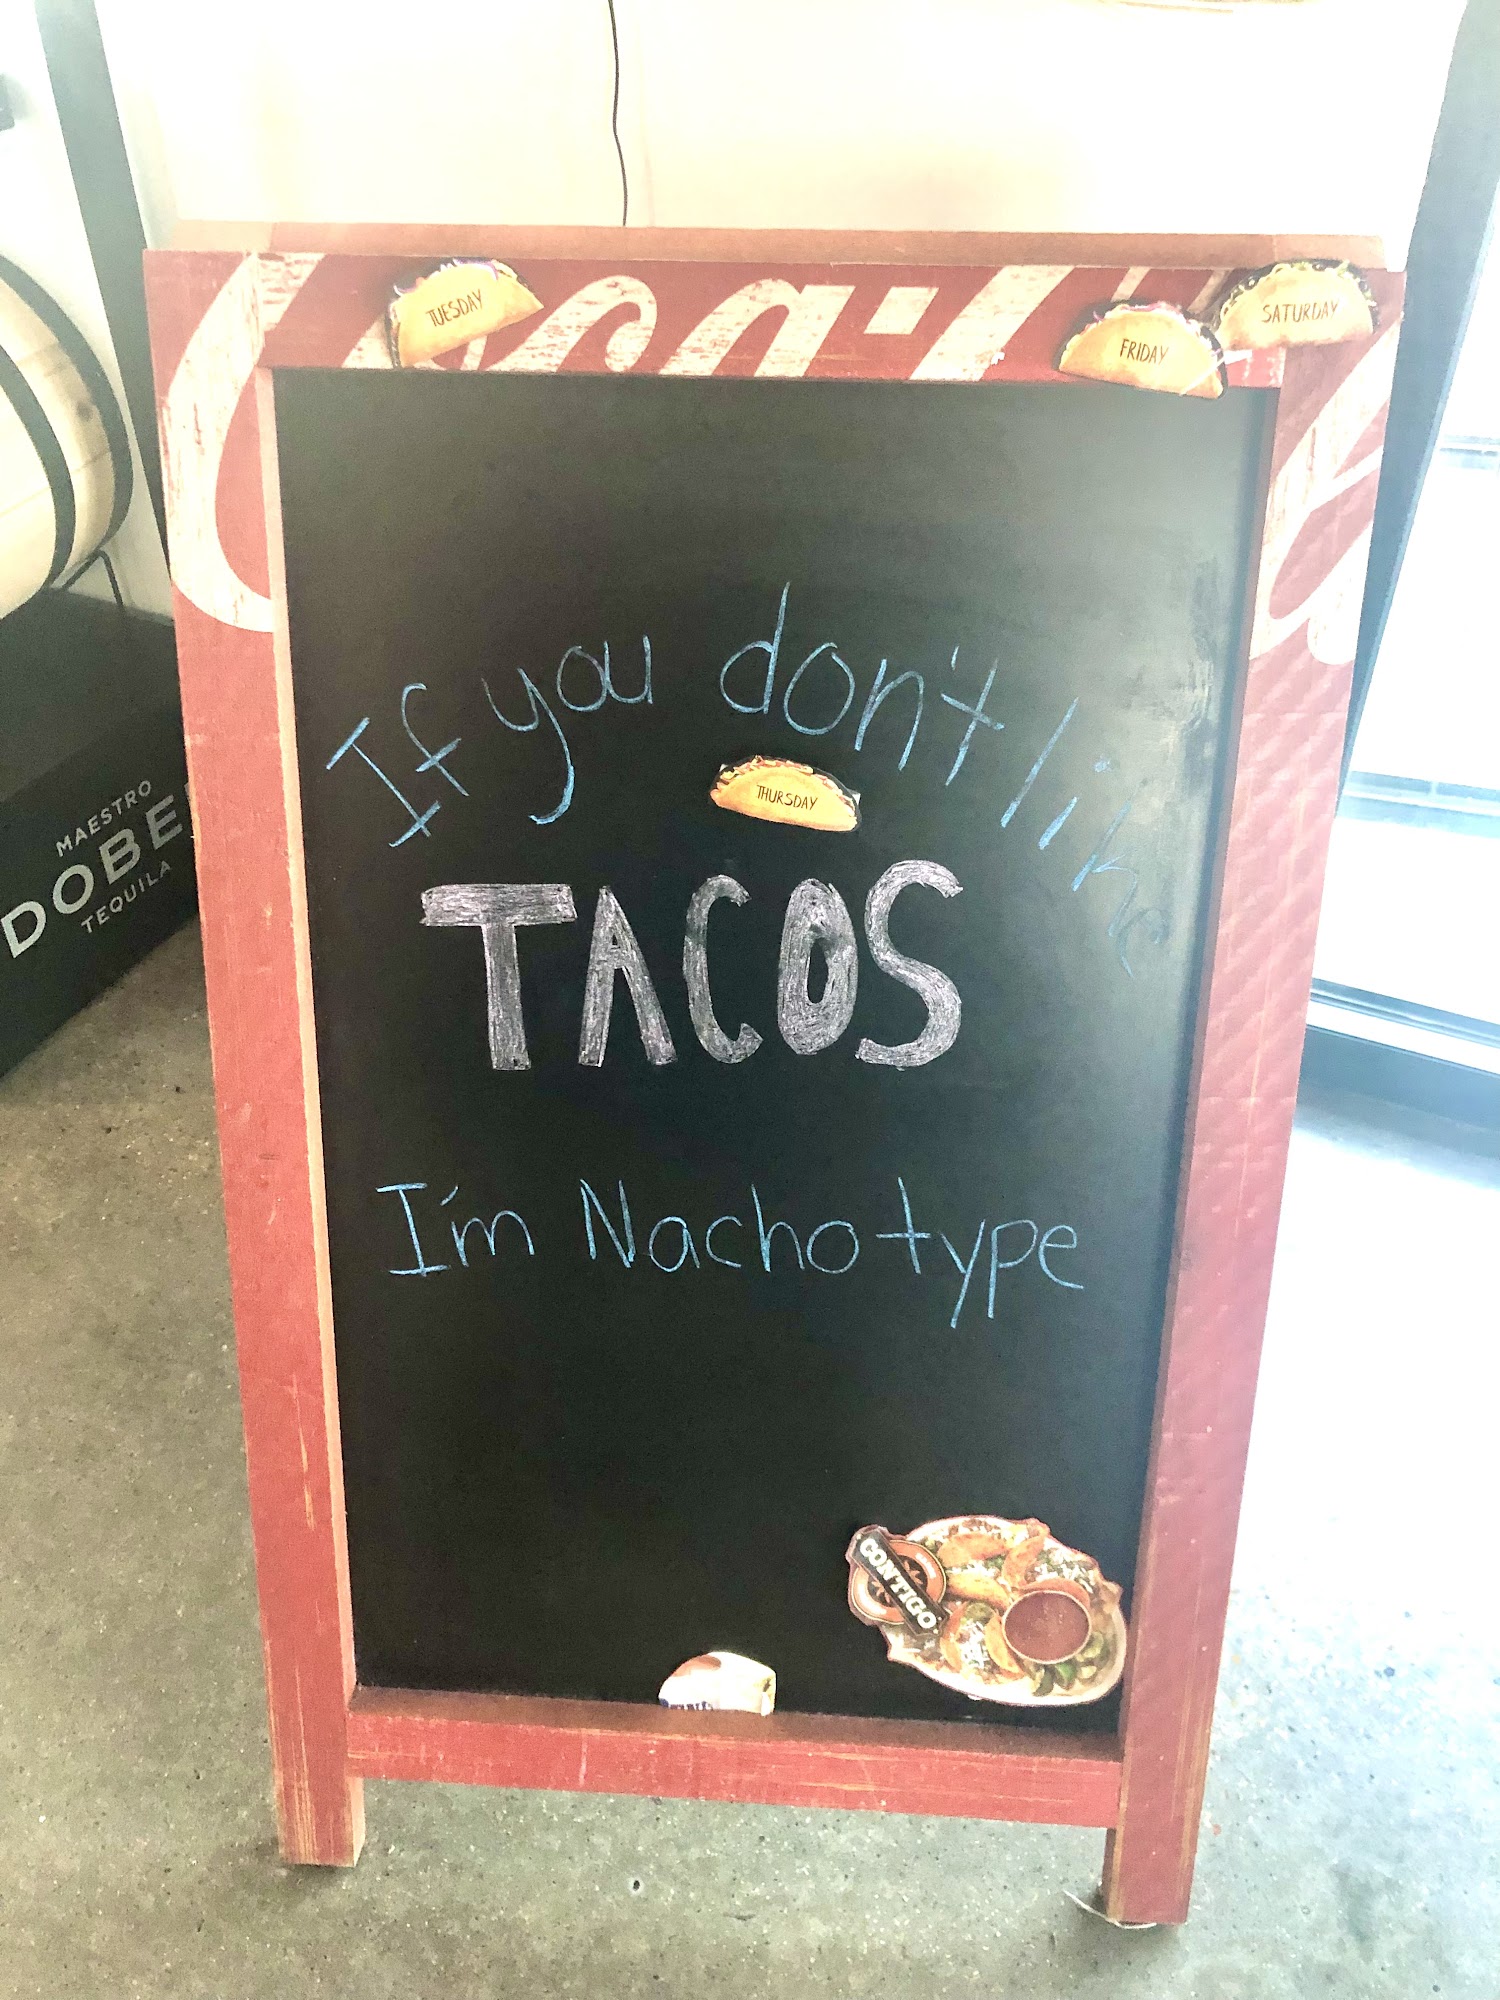 Coca-Cola
TUESDAY
FRIDAY
SATURDAY
If you don't like
THURSDAY
TACOS
I'm Nacho type
MAESTRO
DOBEL
TEQUILA
CONTIGO